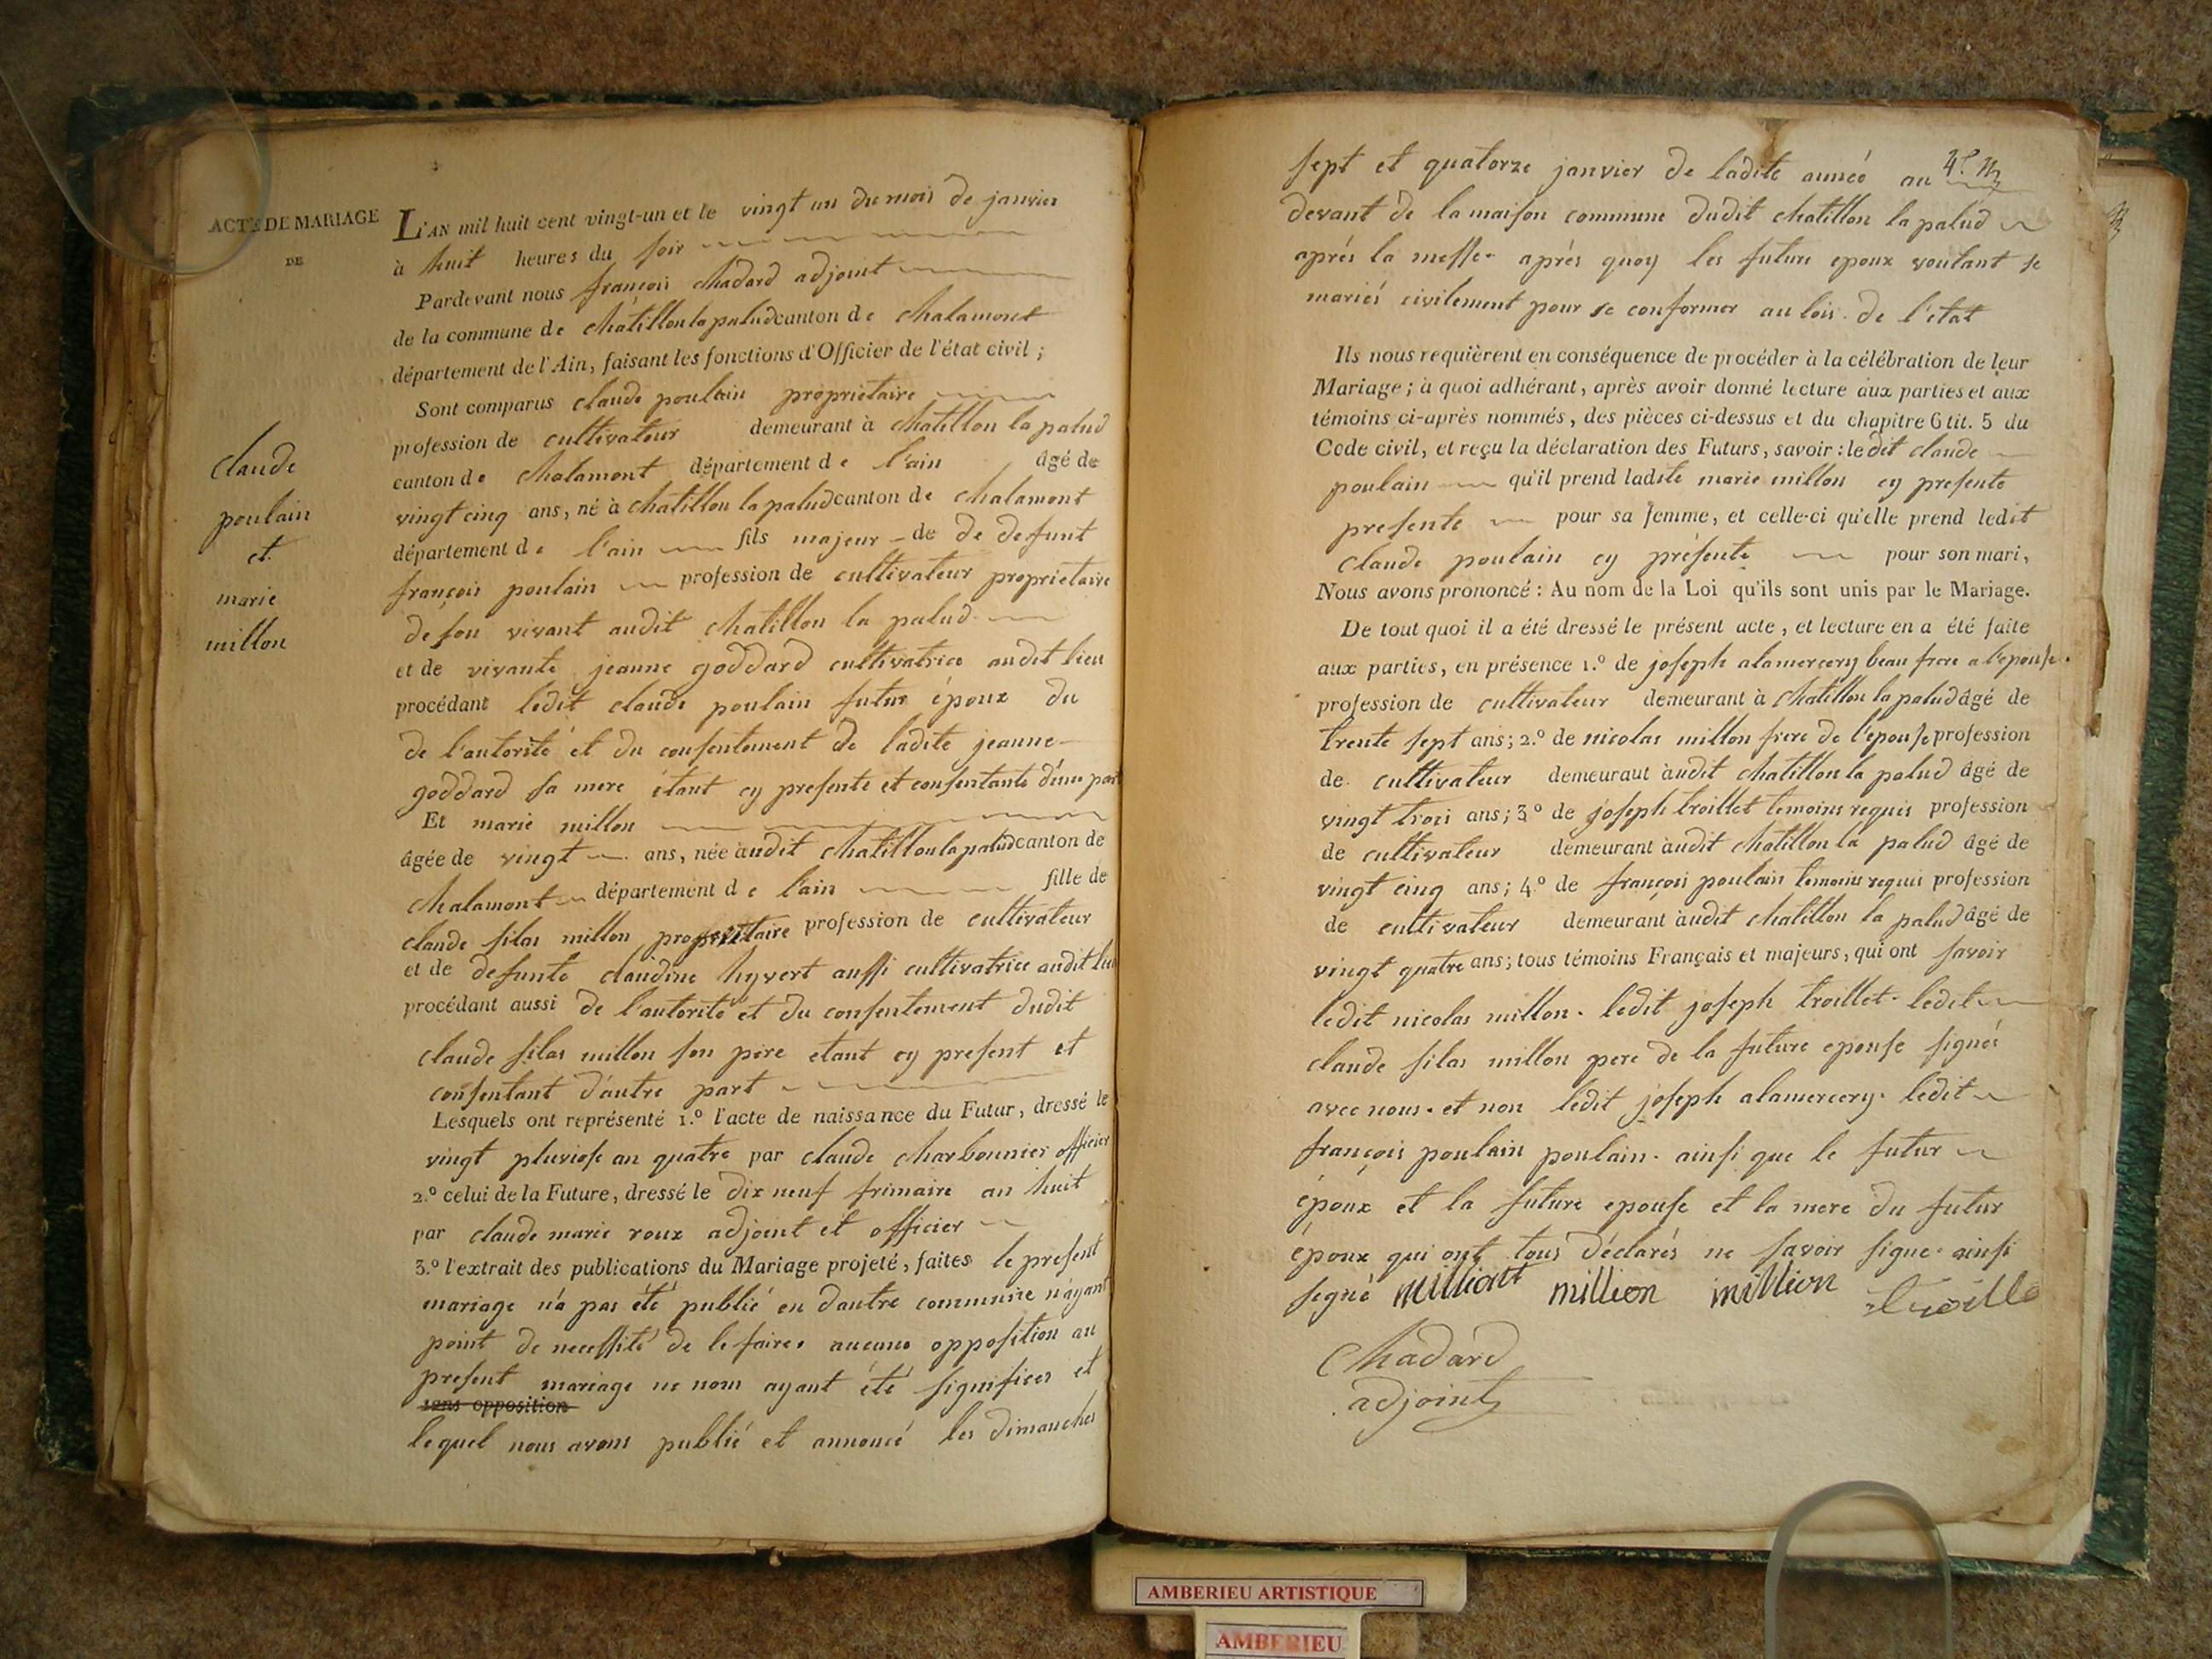 ACTE DE MARIAGE
DE
claude
poulain
et
marie
millon
L'AN mil huit cent vingt-un et le vingt un du mois de janvier
à huit heures du soir
Pardevant nous françois chadard adjoint
de la commune de chatillon la palud canton de chalamont
département de l'Ain, faisant les fonctions d'Officier de l'état civil ;
Sont comparus claude poulain propriétaire
profession de cultivateur demeurant à chatillon la palud
canton de chalamont département de l'ain âgé de
vingt cinq ans, né à chatillon la palud canton de chalamont
département de l'ain fils majeur de de defunt
françois poulain profession de cultivateur propriétaire
de son vivant audit chatillon la palud
et de vivante jeanne goddard cultivatrice audit lieu
procédant ledit claude poulain futur époux du
de l'autorité et du consentement de ladite jeanne
goddard sa mere étant cy presente et consentante d'une part
Et marie millon
âgée de vingt ans, née audit chatillon la palud canton de
chalamont département de l'ain fille de
claude silas millon propriétaire profession de cultivateur
et de defunte claudine hyvert aussi cultivatrice audit lieu
procédant aussi de l'autorité et du consentement dudit
claude silas millon son père etant cy present et
consentant d'autre part
Lesquels ont représenté 1.º l'acte de naissance du Futur, dressé le
vingt pluviose an quatre par claude charbonnier officier
2.º celui de la Future, dressé le dix neuf frimaire an huit
par claude marie roux adjoint et officier
3.º l'extrait des publications du Mariage projeté, faites le present
mariage n'a pas été publié en d'autre commune n'ayant
point de necessité de le faire. aucune opposition au
present mariage ne nous ayant été signifiées et
sans opposition
lequel nous avons publié et annoncé les dimanches
sept et quatorze janvier de ladite année au
devant de la maison commune dudit chatillon la palud
aprés la messe. aprés quoy les future epoux voulant se
mariés civilement pour se conformer au lois de l'état
Ils nous requièrent en conséquence de procéder à la célébration de leur
Mariage ; à quoi adhérant, après avoir donné lecture aux parties et aux
témoins ci-après nommés, des pièces ci-dessus et du chapitre 6 tit. 5 du
Code civil, et reçu la déclaration des Futurs, savoir : le dit claude
poulain qu'il prend ladite marie millon cy presente
presente pour sa femme, et celle-ci qu'elle prend ledit
claude poulain cy présente pour son mari,
Nous avons prononcé : Au nom de la Loi qu'ils sont unis par le Mariage.
De tout quoi il a été dressé le présent acte, et lecture en a été faite
aux parties, en présence 1.º de joseph alamercery beau frere a l'epouse.
profession de cultivateur demeurant à chatillon la palud âgé de
trente sept ans ; 2.º de nicolas millon frere de l'epouse profession
de cultivateur demeurant audit chatillon la palud âgé de
vingt trois ans ; 3.º de joseph troillet temoins requis profession
de cultivateur demeurant audit chatillon la palud âgé de
vingt cinq ans ; 4.º de françois poulain temoins requis profession
de cultivateur demeurant audit chatillon la palud âgé de
vingt quatre ans ; tous témoins Français et majeurs, qui ont savoir
ledit nicolas millon. ledit joseph troillet. ledit
claude silas millon pere de la future epouse signés
avec nous. et non ledit joseph alamercery. ledit
françois poulain poulain. ainsi que le futur
époux et la future epouse et la mere du futur
époux qui ont tous déclarés ne savoir signe. ainsi
signé million million
Chadard
adjoint
AMBERIEU ARTISTIQUE
AMBERIEU